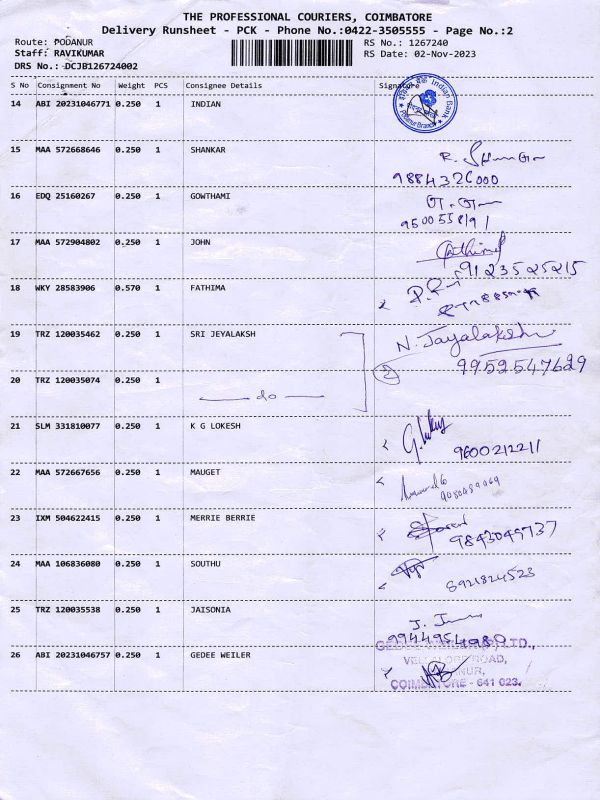 THE PROFESSIONAL COURIERS, COIMBATORE
Delivery Runsheet - PCK - Phone No.:0422-3505555 - Page No.:2
Route: PODANUR
RS No.: 1267240
Staff: RAVIKUMAR
RS Date: 02-Nov-2023
DRS No.: DCJB126724002
S No Consignment No Weight PCS Consignee Details Signature
14 ABI 20231046771 0.250 1 INDIAN
Indian Bank
Podanur Branch
15 MAA 572668646 0.250 1 SHANKAR
9884326000
16 EDQ 25160267 0.250 1 GOWTHAMI
17 MAA 572904802 0.250 1 JOHN
9123525215
18 WKY 28583906 0.570 1 FATHIMA
19 TRZ 120035462 0.250 1 SRI JEYALAKSH
N. Jayalakshmi
2
9952547629
20 TRZ 120035074 0.250 1
do
21 SLM 331810077 0.250 1 K G LOKESH
9600212211
22 MAA 572667656 0.250 1 MAUGET
9080489069
23 IXM 504622415 0.250 1 MERRIE BERRIE
9843049737
24 MAA 106836080 0.250 1 SOUTHU
8921824523
25 TRZ 120035538 0.250 1 JAISONIA
9944954980
26 ABI 20231046757 0.250 1 GEDEE WEILER
GEDEE WEILER (P) LTD.,
ROAD,
COIMBATORE - 641 023.